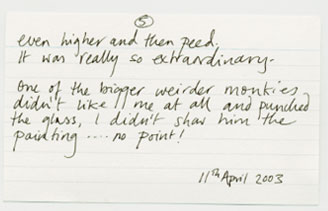 5
even higher and then peed.
It was really so extraordinary.
One of the bigger weirder monkies
didn't like me at all and punched
the glass, I didn't show him the
painting .... no point!
11th April 2003